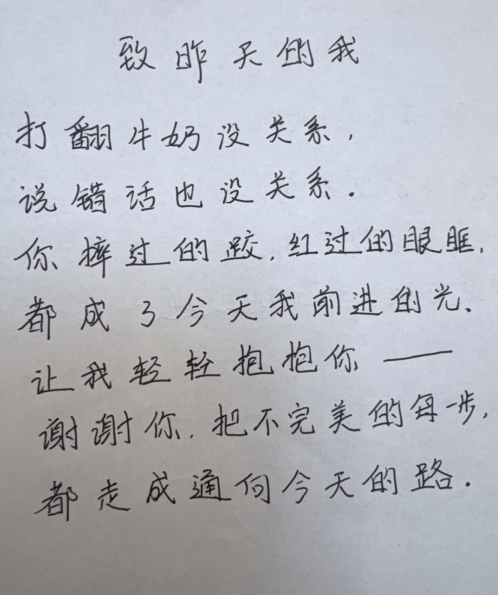 致昨天的我
打翻牛奶没关系，
说错话也没关系．
你摔过的跤，红过的眼眶，
都成了今天我前进的光、
让我轻轻抱抱你——
谢谢你，把不完美的每一步，
都走成通向今天的路．